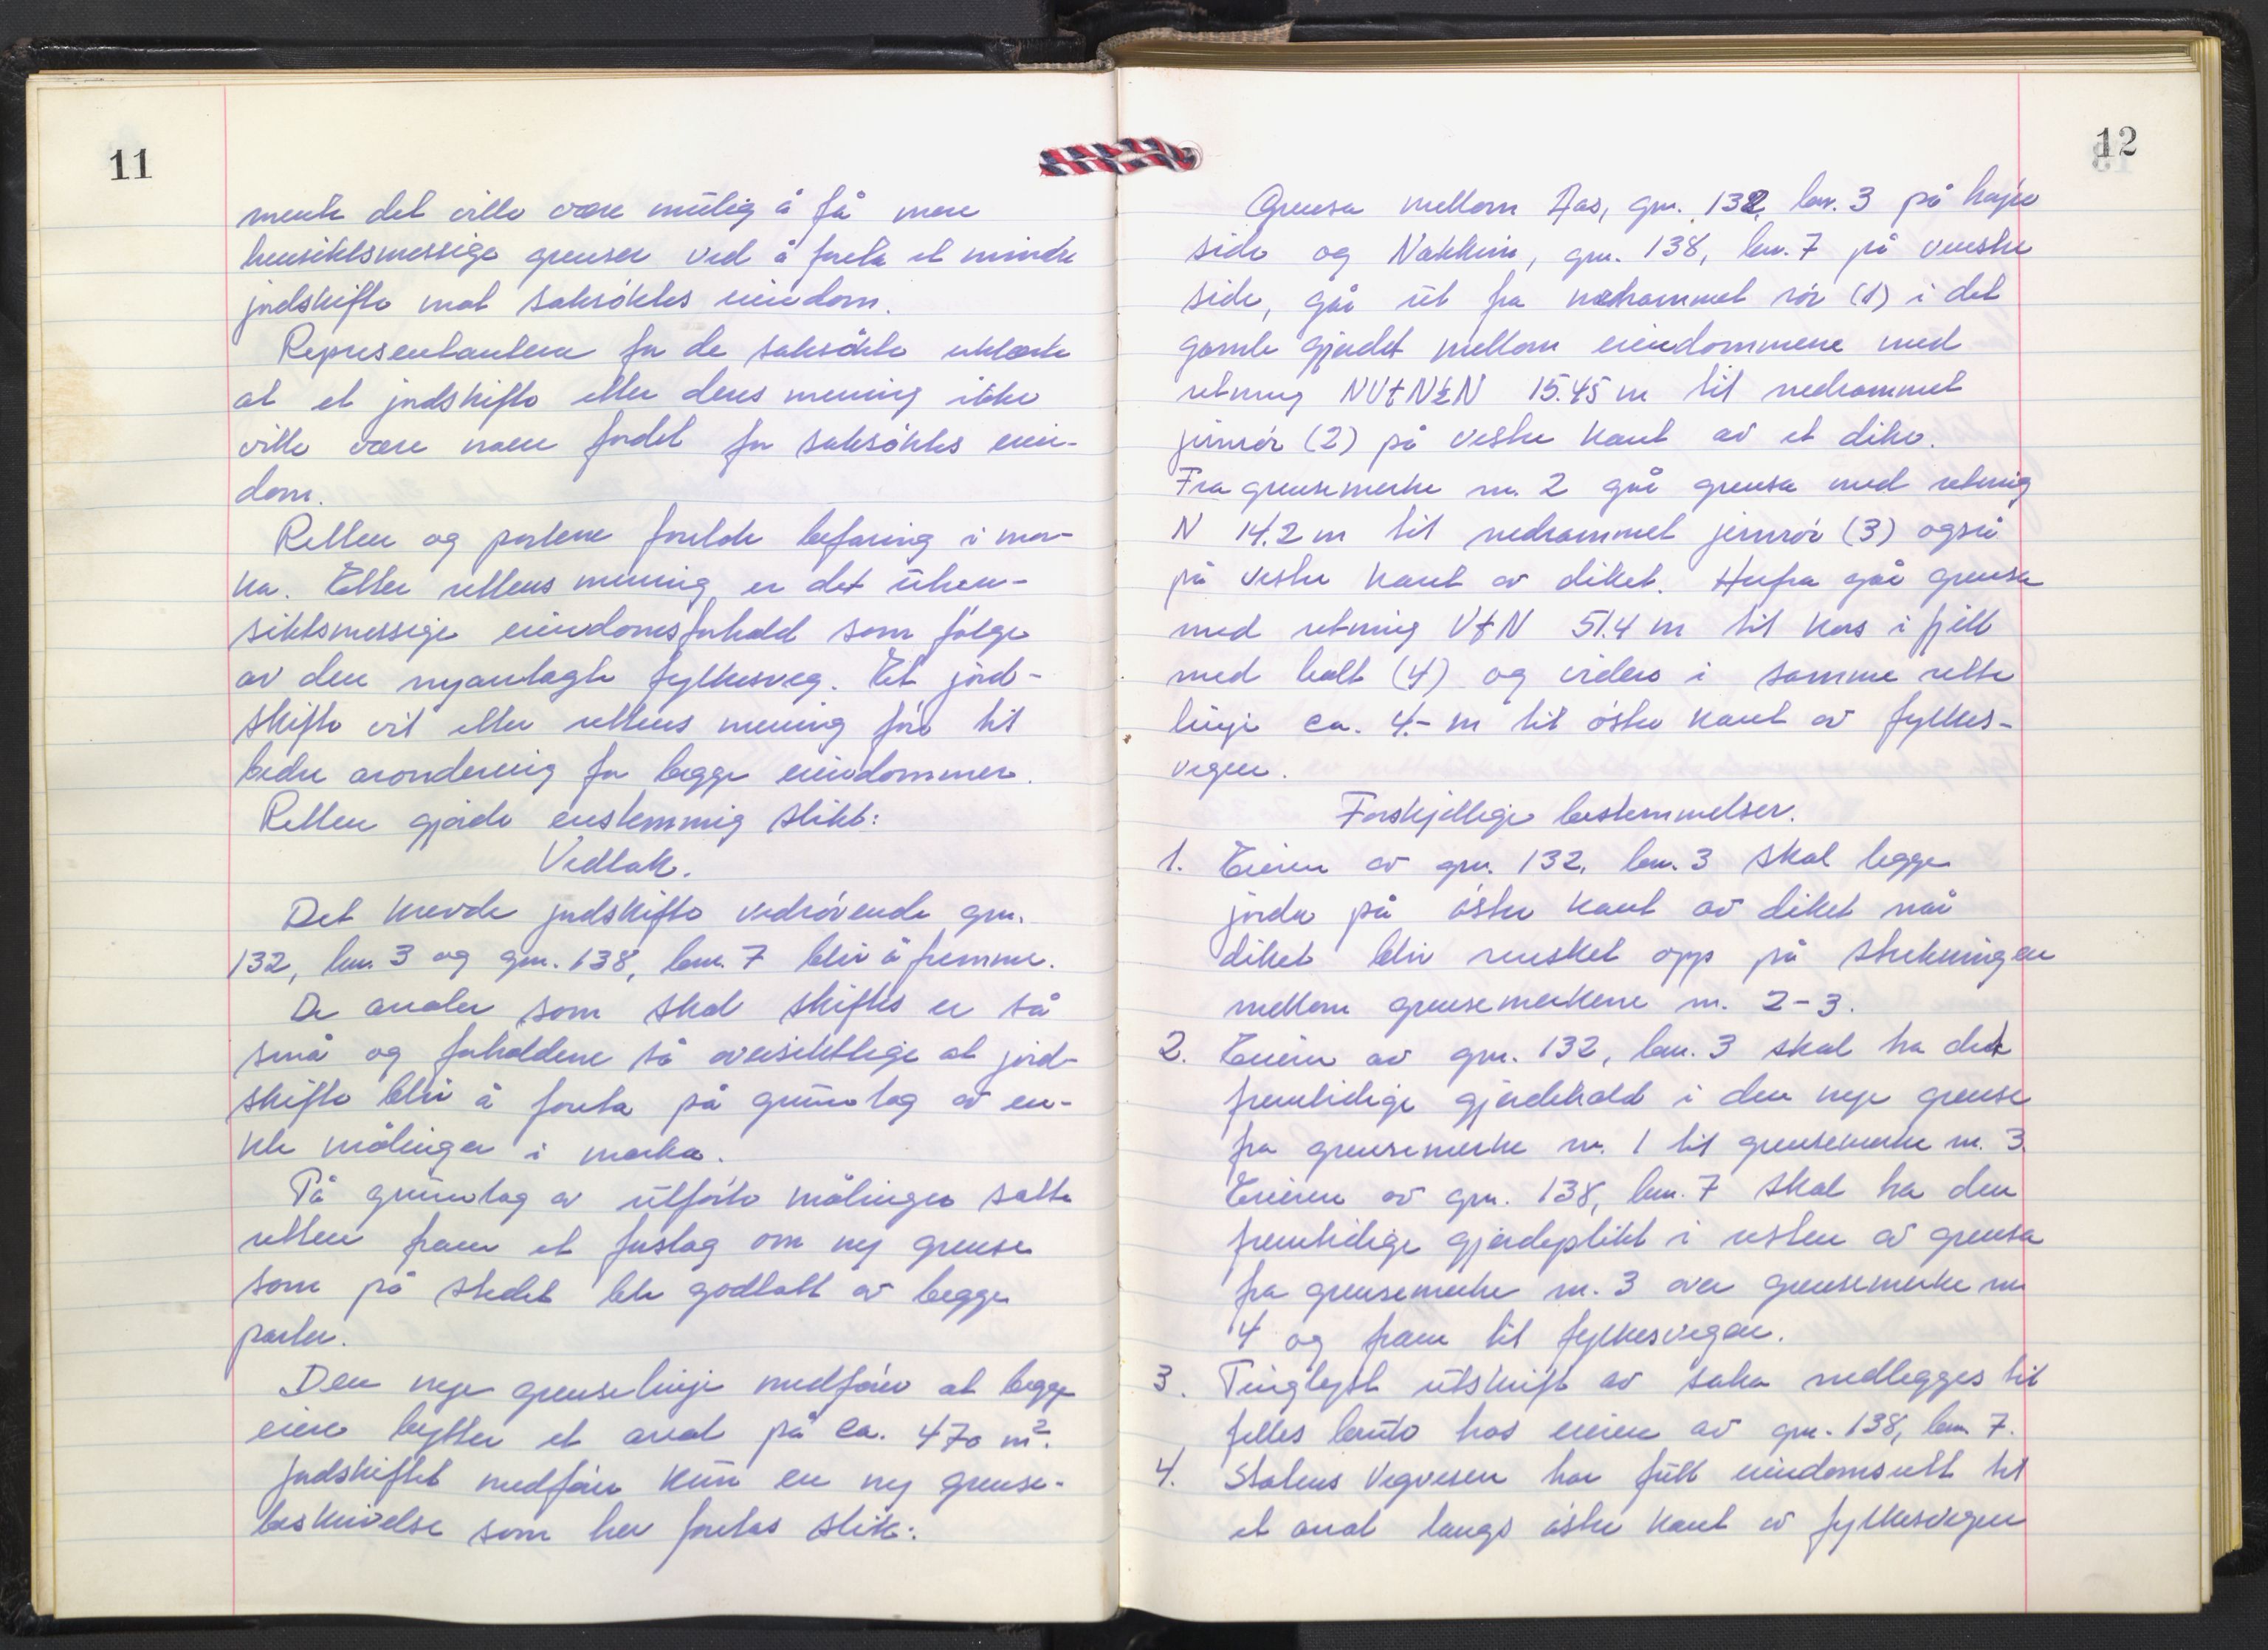 11
mente det ville være mulig å få mere
hensiktsmessige grenser ved å foreta et mindre
jordskifte mot saksøktes eiendom.
Representantene for de saksøkte erklærte
at et jordskifte etter deres mening ikke
ville være noen fordel for saksøktes eien-
dom.
Retten og partene foretok befaring i mar-
ka. Etter rettens mening er det uhen-
siktsmessige eiendomsforhold som følge
av den nyanlagte fylkesveg. Et jord-
skifte vil etter rettens mening føre til
bedre arondering for begge eiendommer.
Retten gjorde enstemmig slikt:
Vedtak.
Det krevde jordskifte vedrørende gnr.
132, bnr. 3 og gnr. 138, bnr. 7 blir å fremme.
De arealer som skal skiftes er så
små og forholdene så oversiktlige at jord-
skifte blir å foreta på grunnlag av en-
kle målinger i marka.
På grunnlag av utførte målinger satte
retten fram et forslag om ny grense
som på stedet ble godtatt av begge
parter.
Den nye grenselinje medfører at begge
eiere bytter et areal på ca. 470 m².
Jordskiftet medfører kun en ny grense-
beskrivelse som her foretas slik:
12
Grensa mellom Aas, gnr. 132, bnr. 3 på høyre
side og Nakkim, gnr. 138, bnr. 7 på venstre
side, går ut fra nedrammet rør (1) i det
gamle gjerdet mellom eiendommene med
retning NVtN½N 15.45 m til nedrammet
jernrør (2) på vestre kant av et dike.
Fra grensemerke nr. 2 går grensa med retning
N 14.2 m til nedrammet jernrør (3) også
på vestre kant av diket. Herfra går grensa
med retning VtN 51.4 m til kors i fjell
med bolt (4) og videre i samme rette
linje ca. 4.- m til østre kant av fylkes-
vegen.
Forskjellige bestemmelser.
1. Eieren av gnr. 132, bnr. 3 skal legge
jorda på østre kant av diket når
diket blir rensket opp på strekningen
mellom grensemerkene nr. 2-3.
2. Eieren av gnr. 132, bnr. 3 skal ha det
fremtidige gjerdehold i den nye grense
fra grensemerke nr. 1 til grensemerke nr. 3.
Eieren av gnr. 138, bnr. 7 skal ha den
fremtidige gjerdeplikt i resten av grensa
fra grensemerke nr. 3 over grensemerke nr
4 og fram til fylkesvegen.
3. Tinglyst utskrift av saka nedlegges til
felles bruk hos eieren av gnr. 138, bnr. 7.
4. Statens Vegvesen har full eiendomsrett til
et areal langs østre kant av fylkesvegen